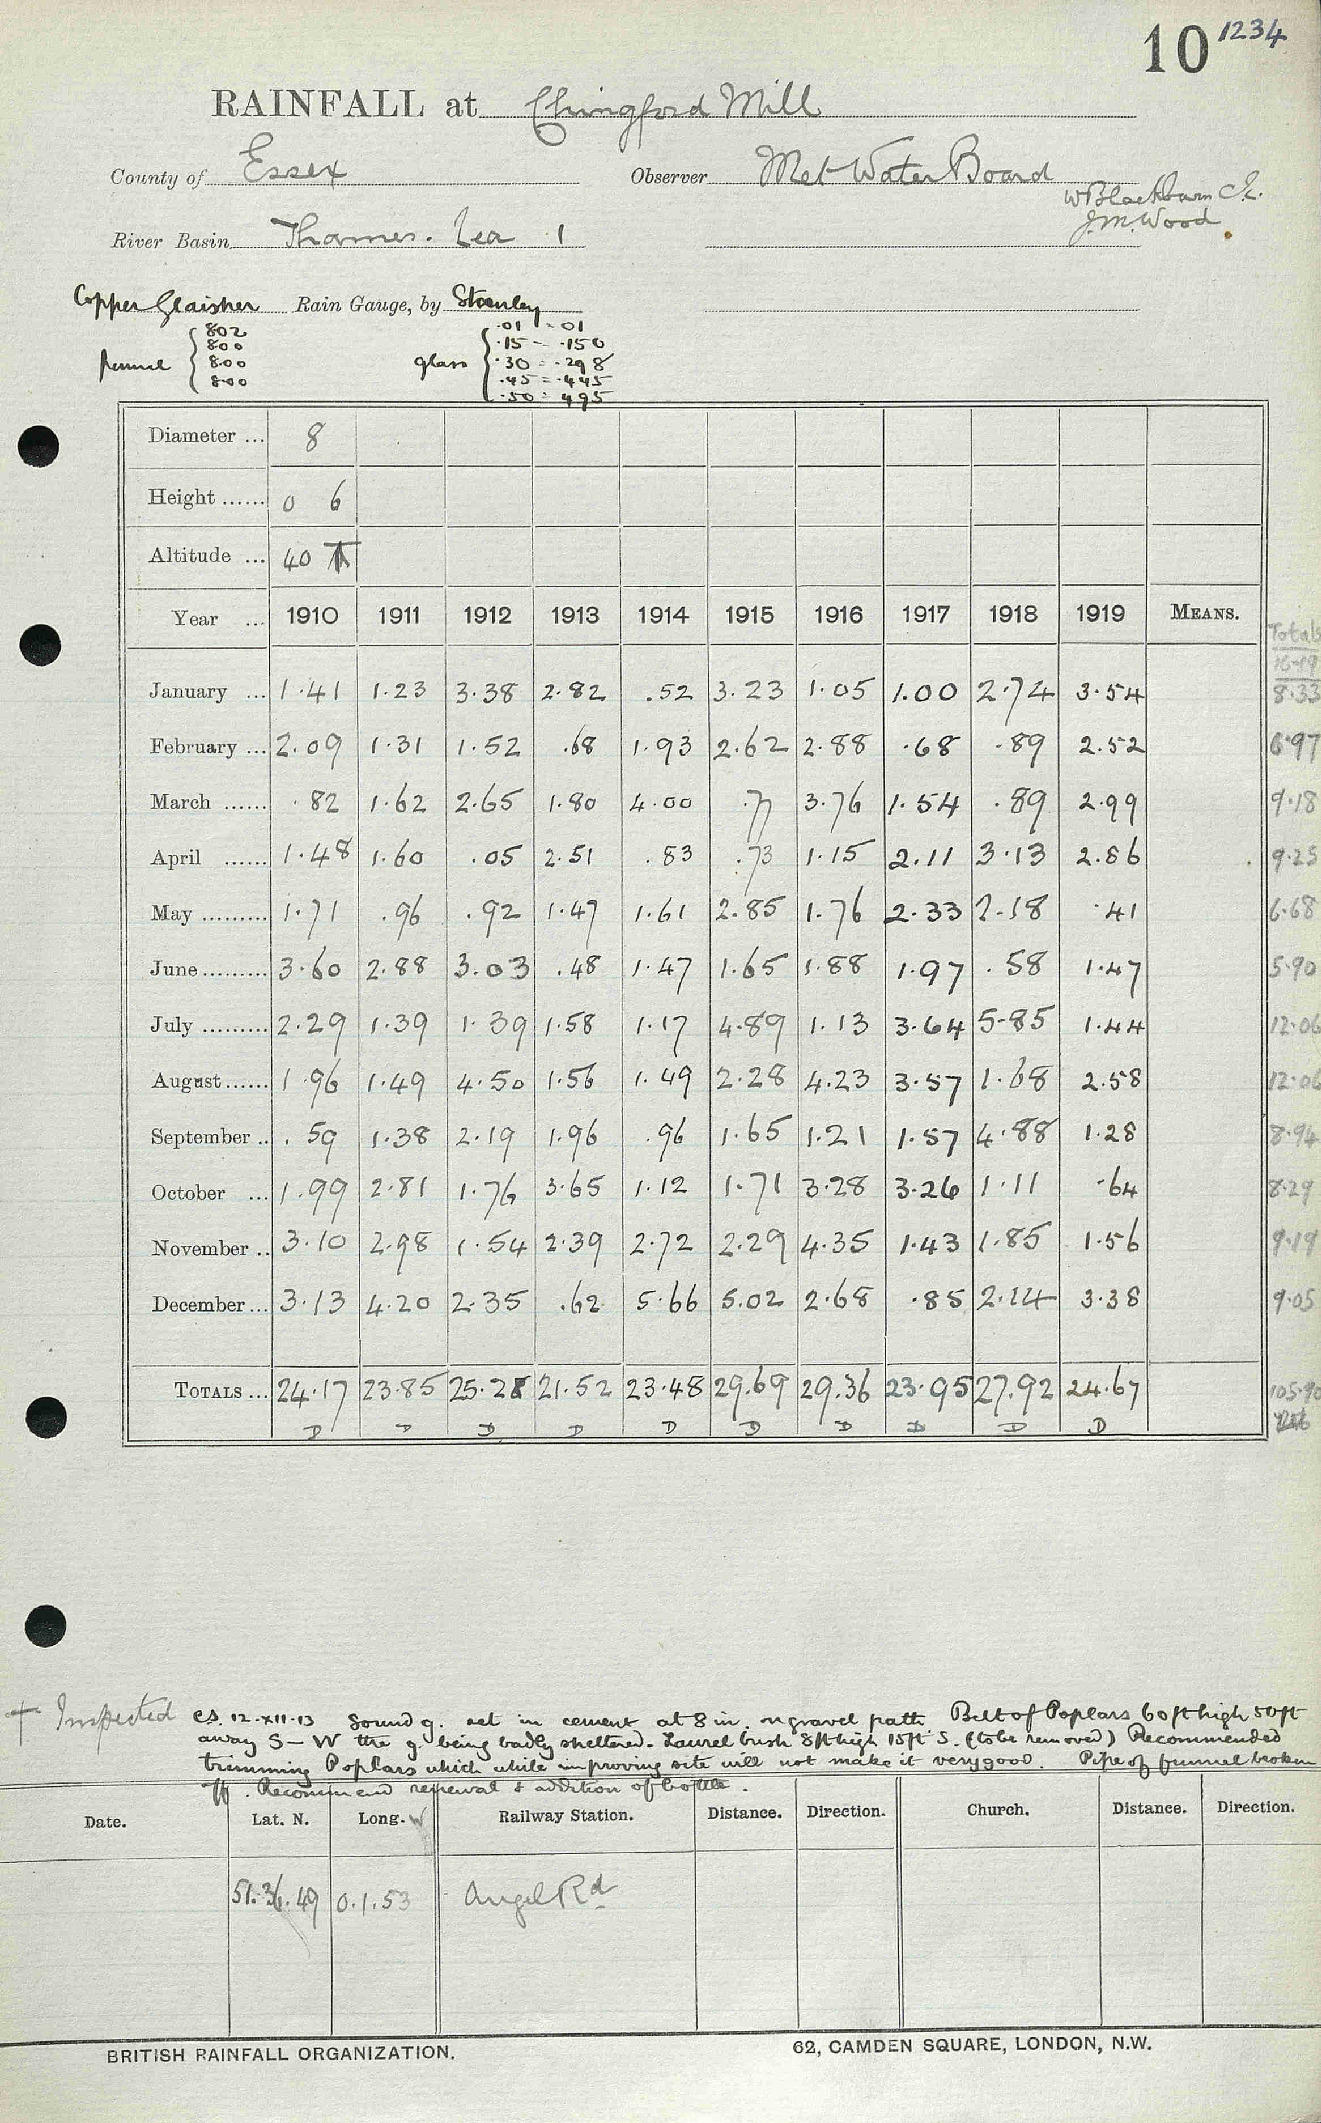 10 1234
RAINFALL at Chingford Mill
County of Essex Observer Met Water Board
W Blackburn C.E.
J. M. Wood
River Basin Thames. Lea 1
Copper Glaisher Rain Gauge, by Stanley
funnel 802 800 800 800
glass .01 = 01 .15 = .150 .30 = .298 .45 = .445 .50 = 495
Diameter ... 8
Height ...... 0 6
Altitude ... 40 T
Year ... 1910 1911 1912 1913 1914 1915 1916 1917 1918 1919 MEANS. Totals 16-19
January ... 1.41 1.23 3.38 2.82 .52 3.23 1.05 1.00 2.74 3.54 8.33
February ... 2.09 1.31 1.52 .68 1.93 2.62 2.88 .68 .89 2.52 6.97
March ...... .82 1.62 2.65 1.80 4.00 .77 3.76 1.54 .89 2.99 9.18
April ...... 1.48 1.60 .05 2.51 .83 .73 1.15 2.11 3.13 2.86 9.25
May ......... 1.71 .96 .92 1.47 1.61 2.85 1.76 2.33 2.18 .41 6.68
June ......... 3.60 2.88 3.03 .48 1.47 1.65 1.88 1.97 .58 1.47 5.90
July ......... 2.29 1.39 1.39 1.58 1.17 4.89 1.13 3.64 5.85 1.44 12.06
August ...... 1.96 1.49 4.50 1.56 1.49 2.28 4.23 3.57 1.68 2.58 12.06
September .. .59 1.38 2.19 1.96 .96 1.65 1.21 1.57 4.88 1.28 8.94
October ... 1.99 2.81 1.76 3.65 1.12 1.71 3.28 3.26 1.11 .64 8.29
November .. 3.10 2.98 1.54 2.39 2.72 2.29 4.35 1.43 1.85 1.56 9.19
December ... 3.13 4.20 2.35 .62 5.66 5.02 2.68 .85 2.14 3.38 9.05
TOTALS ... 24.17 23.85 25.28 21.52 23.48 29.69 29.36 23.95 27.92 24.67 105.90
D D D D D D D D D D
† Inspected CS. 12.XII.13 Sound g. set in cement at 8 in. on gravel path Belt of Poplars 60 ft high 50 ft
away S–W the g. being badly sheltered. Laurel bush 8 ft high 15 ft S. (to be removed) Recommended
trimming Poplars which while improving site will not make it very good. Pipe of funnel broken
off. Recommend renewal & addition of bottle.
Date. Lat. N. Long. W Railway Station. Distance. Direction. Church. Distance. Direction.
51.36.49 0.1.53 Angel Rd
BRITISH RAINFALL ORGANIZATION. 62, CAMDEN SQUARE, LONDON, N.W.